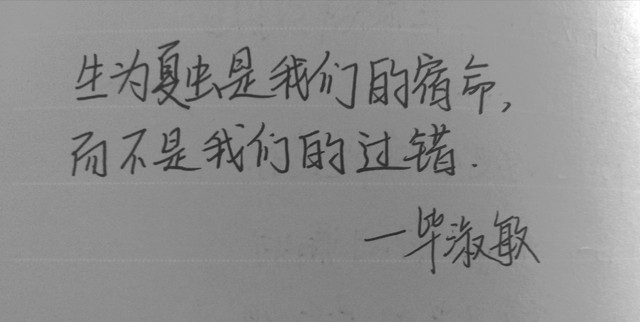 生为夏虫是我们的宿命,
而不是我们的过错.
—毕淑敏